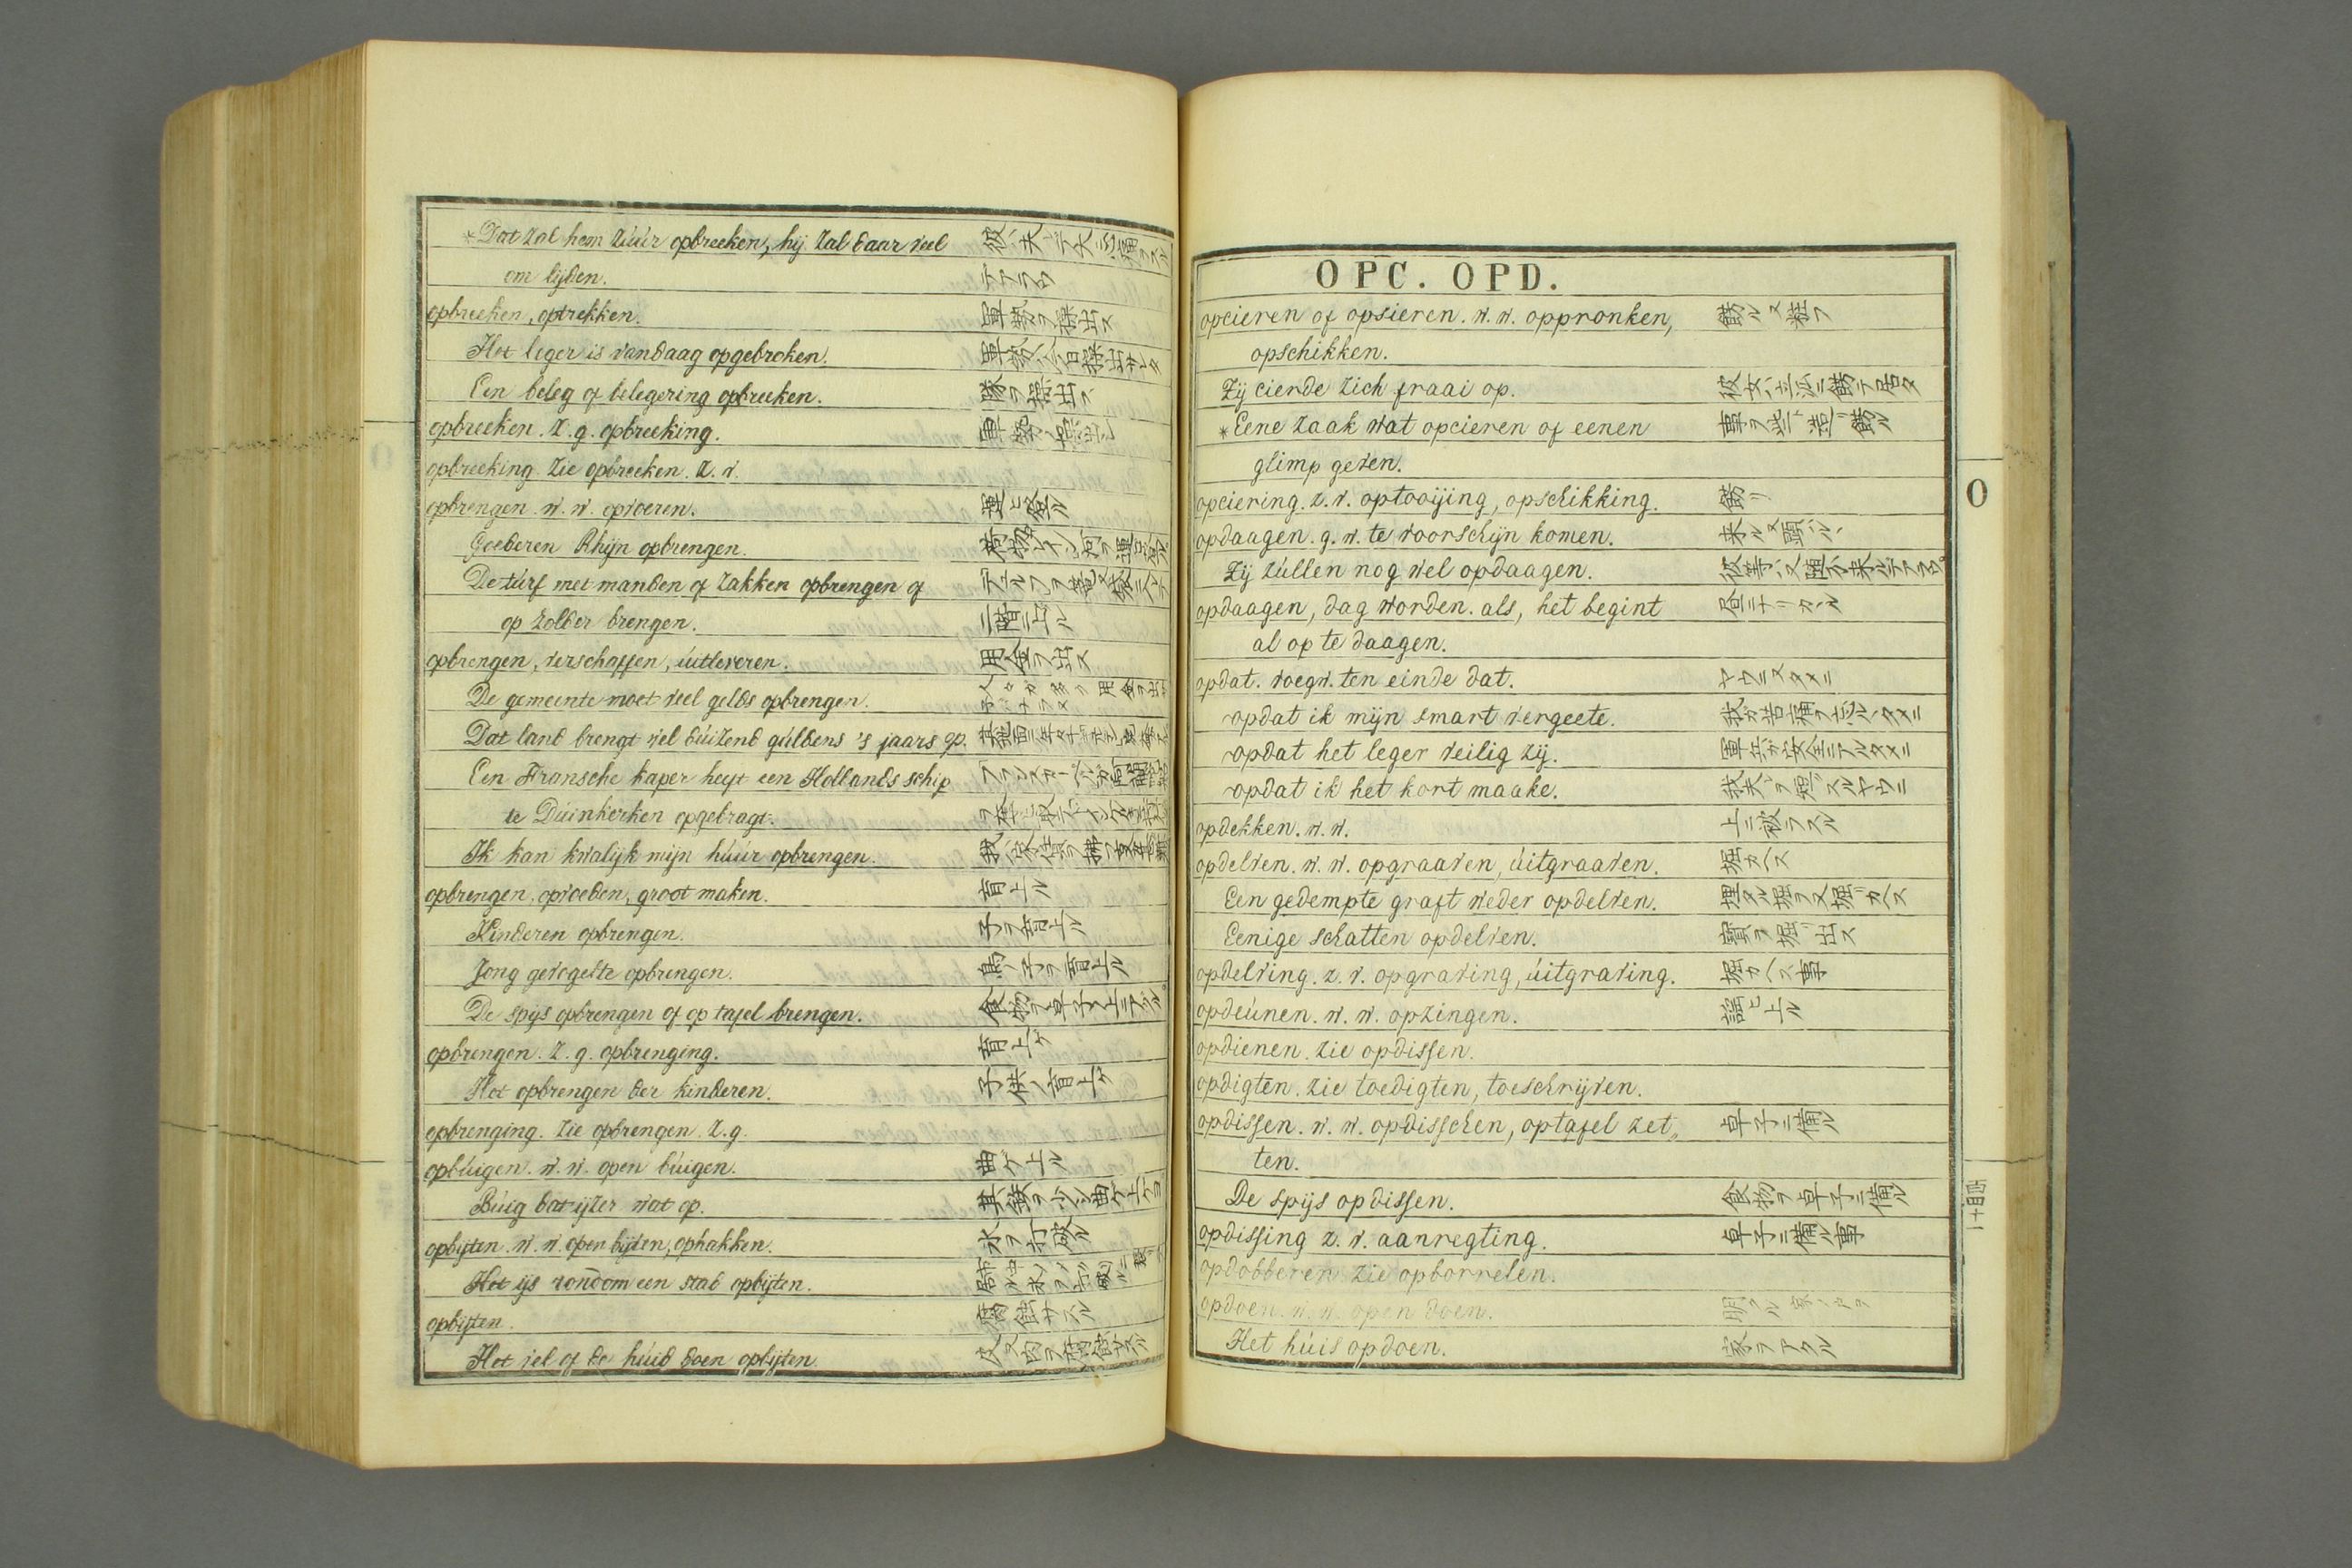 *Dat zal hem zúúr opbreeken, hij zal daar veel
om lijden.
opbreeken, optrekken. 軍勢ヲ操出ス
Het leger is vandaag opgebroken.
Een beleg of belegering opbreeken. 隊ヲ操出ス
opbreeken. z. g. opbreeking.
opbreeking. zie opbreeken. z. v.
opbrengen. w. w. opvoeren. 運ヒ登ル
Goederen Rhijn opbrengen.
De túrf met manden of zakken opbrengen of
op zolder brengen. 二階ニ上ル
opbrengen, verschaffen, úitleveren. 用金ヲ出ス
De gemeente moet veel gelds opbrengen.
Dat land brengt vel dúizend gúldens 's jaars op.
Een Fransche kaper heeft een Hollands schip
te Dúinkerken opgebragt.
Ik kan kwalijk mijn húúr opbrengen.
opbrengen, opvoeden, groot maken. 育上ル
Kinderen opbrengen. 子ヲ育上ル
Jong gevogelte opbrengen. 鳥ノ子ヲ育上ル
De spijs opbrengen of op tafel brengen.
opbrengen. z. g. opbrenging. 育上ケ
Het opbrengen der kinderen. 子供ノ育上ケ
opbrenging. zie opbrengen. z. g.
opbúigen. w. w. open búigen. 曲ケ上ル
Búig dat ijzer wat op.
opbijten. w. w. open bijten, ophakken. 氷ヲ打破ル
Het ijs rondom een stad opbijten.
opbijten. 腐蝕サスル
Het vel of de húid doen opbijten.
OPC. OPD.
opcieren of opsieren. w. w. oppronken, 餝ル又粧フ
opschikken.
Zij cierde zich fraai op.
*Eene zaak wat opcieren of eenen
glimp geven.
opciering. z. v. optooijing, opschikking. 餝リ
opdaagen. g. w. te voorschijn komen. 来ル又顕ルヽ
Zij zúllen nog wel opdaagen.
opdaagen, dag worden. als, het begint 昼ニナリカヽル
al op te daagen.
opdat. voegw. ten einde dat. ヤウニ又タメニ
opdat ik mijn smart vergeete. 我カ苦痛ヲ忘ルヽタメニ
opdat het leger veilig zij. 軍兵カ安全ニアルタメニ
opdat ik het kort maake.
opdekken. w. w. 上ニ被ヲスル
opdelven. w. w. opgraaven, úitgraaven. 堀カヘス
Een gedempte graft weder opdelven. 埋タル堀ヲ又堀リカヘス
Eenige schatten opdelven. 寳ヲ堀リ出ス
opdelving. z. v. opgraving, úitgraving. 堀カヘス事
opdeúnen. w. w. opzingen. 謡ヒ上ル
opdienen. zie opdissen.
opdigten. zie toedigten, toeschrijven.
opdissen. w. w. opdisschen, optafel zet„ 卓子ニ備ル
ten.
De spijs opdissen. 食物ヲ卓子ニ備ル
opdissing z. v. aanregting. 卓子ニ備ル事
opdobberen zie opborrelen.
opdoen. w. w. open doen.
Het húis opdoen. 家ヲアクル
O